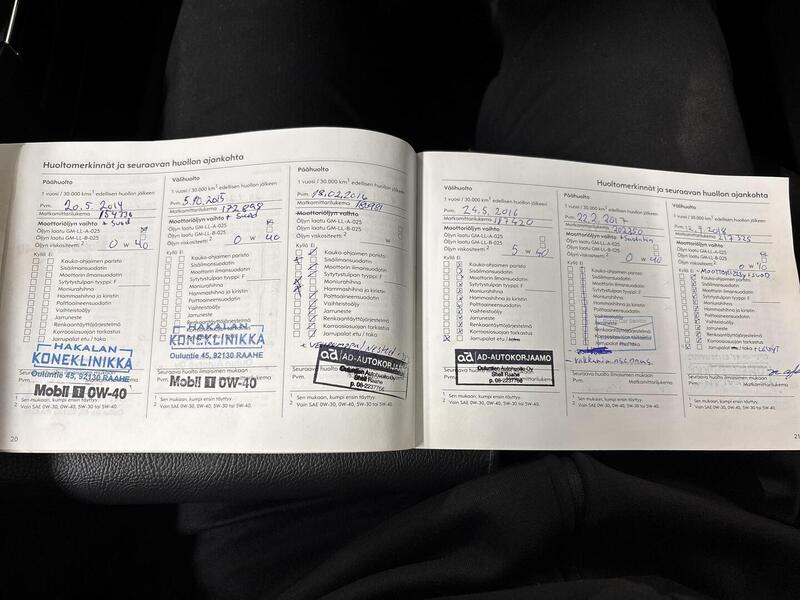 Huoltomerkinnät ja seuraavan huollon ajankohta
Päähuolto
1 vuosi / 30.000 km¹ edellisen huollon jälkeen
Pvm. 20.5.2014
Matkamittarilukema
Moottoriöljyn vaihto + suod
Öljyn laatu GM-LL-A-025
Öljyn laatu GM-LL-B-025
Öljyn viskositeetti ² 0 W 40
Kyllä Ei
Kauko-ohjaimen paristo
Sisäilmansuodatin
Moottorin ilmansuodatin
Sytytystulpan tyyppi: F
Moniurahihna
Hammashihna ja kiristin
Polttoaineensuodatin
Vaihteistoöljy
Jarruneste
Renkaantäyttöjärjestelmä
Korroosiosuojan tarkastus
Jarrupalat etu / taka
HAKALAN
KONEKLINIKKA
Ouluntie 45, 92130 RAAHE
Mobil 1 0W-40
1 Sen mukaan, kumpi ensin täyttyy.
2 Vain SAE 0W-30, 0W-40, 5W-30 tai 5W-40.
20
Välihuolto
1 vuosi / 30.000 km¹ edellisen huollon jälkeen
Pvm. 5.10.2015
Matkamittarilukema 172898
Moottoriöljyn vaihto + suod
Öljyn laatu GM-LL-A-025
Öljyn laatu GM-LL-B-025
Öljyn viskositeetti ² 0 W 40
Kyllä Ei
Kauko-ohjaimen paristo
Sisäilmansuodatin
Moottorin ilmansuodatin
Sytytystulpan tyyppi: F
Moniurahihna
Hammashihna ja kiristin
Polttoaineensuodatin
Vaihteistoöljy
Jarruneste
Renkaantäyttöjärjestelmä
Korroosiosuojan tarkastus
Jarrupalat etu / taka
HAKALAN
KONEKLINIKKA
Ouluntie 45, 92130 RAAHE
Mobil 1 0W-40
1 Sen mukaan, kumpi ensin täyttyy.
2 Vain SAE 0W-30, 0W-40, 5W-30 tai 5W-40.
Päähuolto
1 vuosi / 30.000 km¹ edellisen huollon jälkeen
Pvm. 18.02.2016
Matkamittarilukema
Moottoriöljyn vaihto
Öljyn laatu GM-LL-A-025
Öljyn laatu GM-LL-B-025
Öljyn viskositeetti ² W
Kyllä Ei
Kauko-ohjaimen paristo
Sisäilmansuodatin
Moottorin ilmansuodatin
Sytytystulpan tyyppi: F
Moniurahihna
Hammashihna ja kiristin
Polttoaineensuodatin
Vaihteistoöljy
Jarruneste
Renkaantäyttöjärjestelmä
Korroosiosuojan tarkastus
Jarrupalat etu / taka
ad AD-AUTOKORJAAMO
Shell Raahe
p. 08-2237766
1 Sen mukaan, kumpi ensin täyttyy.
2 Vain SAE 0W-30, 0W-40, 5W-30 tai 5W-40.
Huoltomerkinnät ja seuraavan huollon ajankohta
Välihuolto
1 vuosi / 30.000 km¹ edellisen huollon jälkeen
Pvm. 24.5.2016
Matkamittarilukema 187420
Moottoriöljyn vaihto
Öljyn laatu GM-LL-A-025
Öljyn laatu GM-LL-B-025
Öljyn viskositeetti ² 5 W 40
Kyllä Ei
Kauko-ohjaimen paristo
Sisäilmansuodatin
Moottorin ilmansuodatin
Sytytystulpan tyyppi: F
Moniurahihna
Hammashihna ja kiristin
Polttoaineensuodatin
Vaihteistoöljy
Jarruneste
Renkaantäyttöjärjestelmä
Korroosiosuojan tarkastus
Jarrupalat etu / taka
ad AD-AUTOKORJAAMO
Ouluntien Autohuolto Oy
Shell Raahe
p. 08-2237766
1 Sen mukaan, kumpi ensin täyttyy.
2 Vain SAE 0W-30, 0W-40, 5W-30 tai 5W-40.
Päähuolto
1 vuosi / 30.000 km¹ edellisen huollon jälkeen
Pvm. 22.2.2017
Matkamittarilukema 202350
Moottoriöljyn vaihto
Öljyn laatu GM-LL-A-025
Öljyn laatu GM-LL-B-025
Öljyn viskositeetti ² 0 W 40
Kyllä Ei
Kauko-ohjaimen paristo
Sisäilmansuodatin
Moottorin ilmansuodatin
Sytytystulpan tyyppi: F
Moniurahihna
Hammashihna ja kiristin
Polttoaineensuodatin
Vaihteistoöljy
Jarruneste
Renkaantäyttöjärjestelmä
Korroosiosuojan tarkastus
Seuraava huolto ilmaisimen mukaan
Matkamittarilukema
1 Sen mukaan, kumpi ensin täyttyy.
2 Vain SAE 0W-30, 0W-40, 5W-30 tai 5W-40.
Välihuolto
1 vuosi / 30.000 km¹ edellisen huollon jälkeen
Pvm. 12.9.2018
Matkamittarilukema 217325
Moottoriöljyn vaihto
Öljyn laatu GM-LL-A-025
Öljyn laatu GM-LL-B-025
Öljyn viskositeetti ² 0 W 40
Kyllä Ei
Kauko-ohjaimen paristo
Sisäilmansuodatin
Moottorin ilmansuodatin
Sytytystulpan tyyppi: F
Moniurahihna
Hammashihna ja kiristin
Polttoaineensuodatin
Vaihteistoöljy
Jarruneste
Renkaantäyttöjärjestelmä
Korroosiosuojan tarkastus
Jarrupalat etu / taka + LEVYT
1 Sen mukaan, kumpi ensin täyttyy.
2 Vain SAE 0W-30, 0W-40, 5W-30 tai 5W-40.